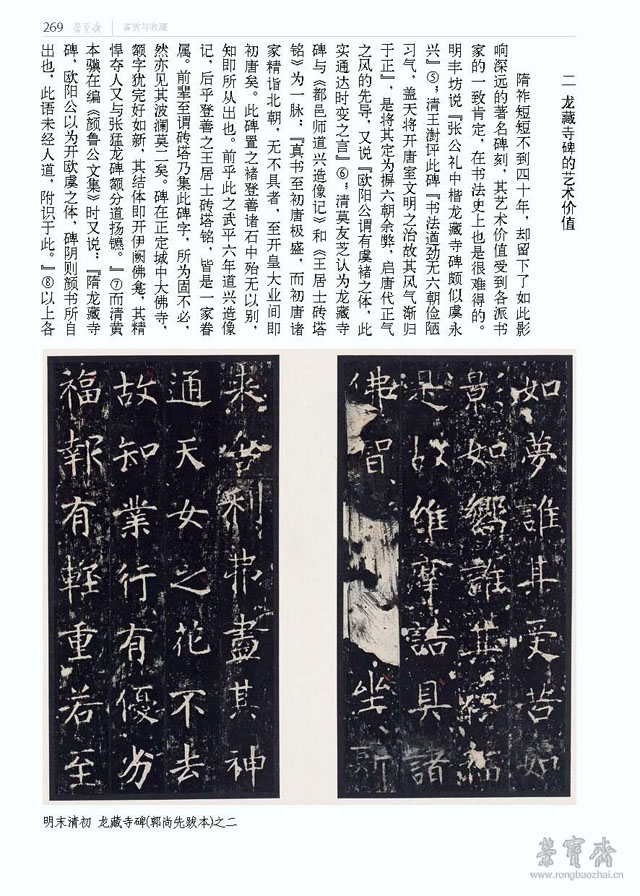 269 荣宝斋 鉴赏与收藏
二 龙藏寺碑的艺术价值
隋祚短短不到四十年，却留下了如此影
响深远的著名碑刻，其艺术价值受到各派书
家的一致肯定，在书法史上也是很难得的。
明丰坊说『张公礼中楷龙藏寺碑颇似虞永
兴』⑤；清王澍评此碑『书法遒劲无六朝俭陋
习气，盖天将开唐室文明之治故其风气渐归
于正』，是将其定为摒六朝余弊，启唐代正气
之风的先导，又说『欧阳公谓有虞褚之体，此
实通达时变之言』⑥；清莫友芝认为龙藏寺
碑与《都邑师道兴造像记》和《王居士砖塔
铭》为一脉：『真书至初唐极盛，而初唐诸
家精诣北朝，无不具者，至开皇大业间即
初唐矣。此碑置之褚登善诸石中殆无以别，
知即所从出也。前乎此之武平六年道兴造像
记，后乎登善之王居士砖塔铭，皆是一家眷
属。前辈至谓砖塔乃集此碑字，所为固不必，
然亦见其波澜莫二矣。碑在正定城中大佛寺，
额字犹完好如新，其结体即开伊阙佛龛，其精
悍夺人又与张猛龙碑额分道扬镳。』⑦而清黄
本骥在编《颜鲁公文集》时又说：『隋龙藏寺
碑，欧阳公以为开欧虞之体，碑阴则颜书所自
出也，此语未经人道，附识于此。』⑧以上各
如夢誰其受苦如
影如響誰其報福
是故維摩詰具諸
佛智坐斯
来舍利弗盡其神
通天女之花不去
故知業行有優劣
福報有輕重若至
明末清初 龙藏寺碑(郭尚先跋本)之二
榮寶齋
www.rongbaozhai.cn